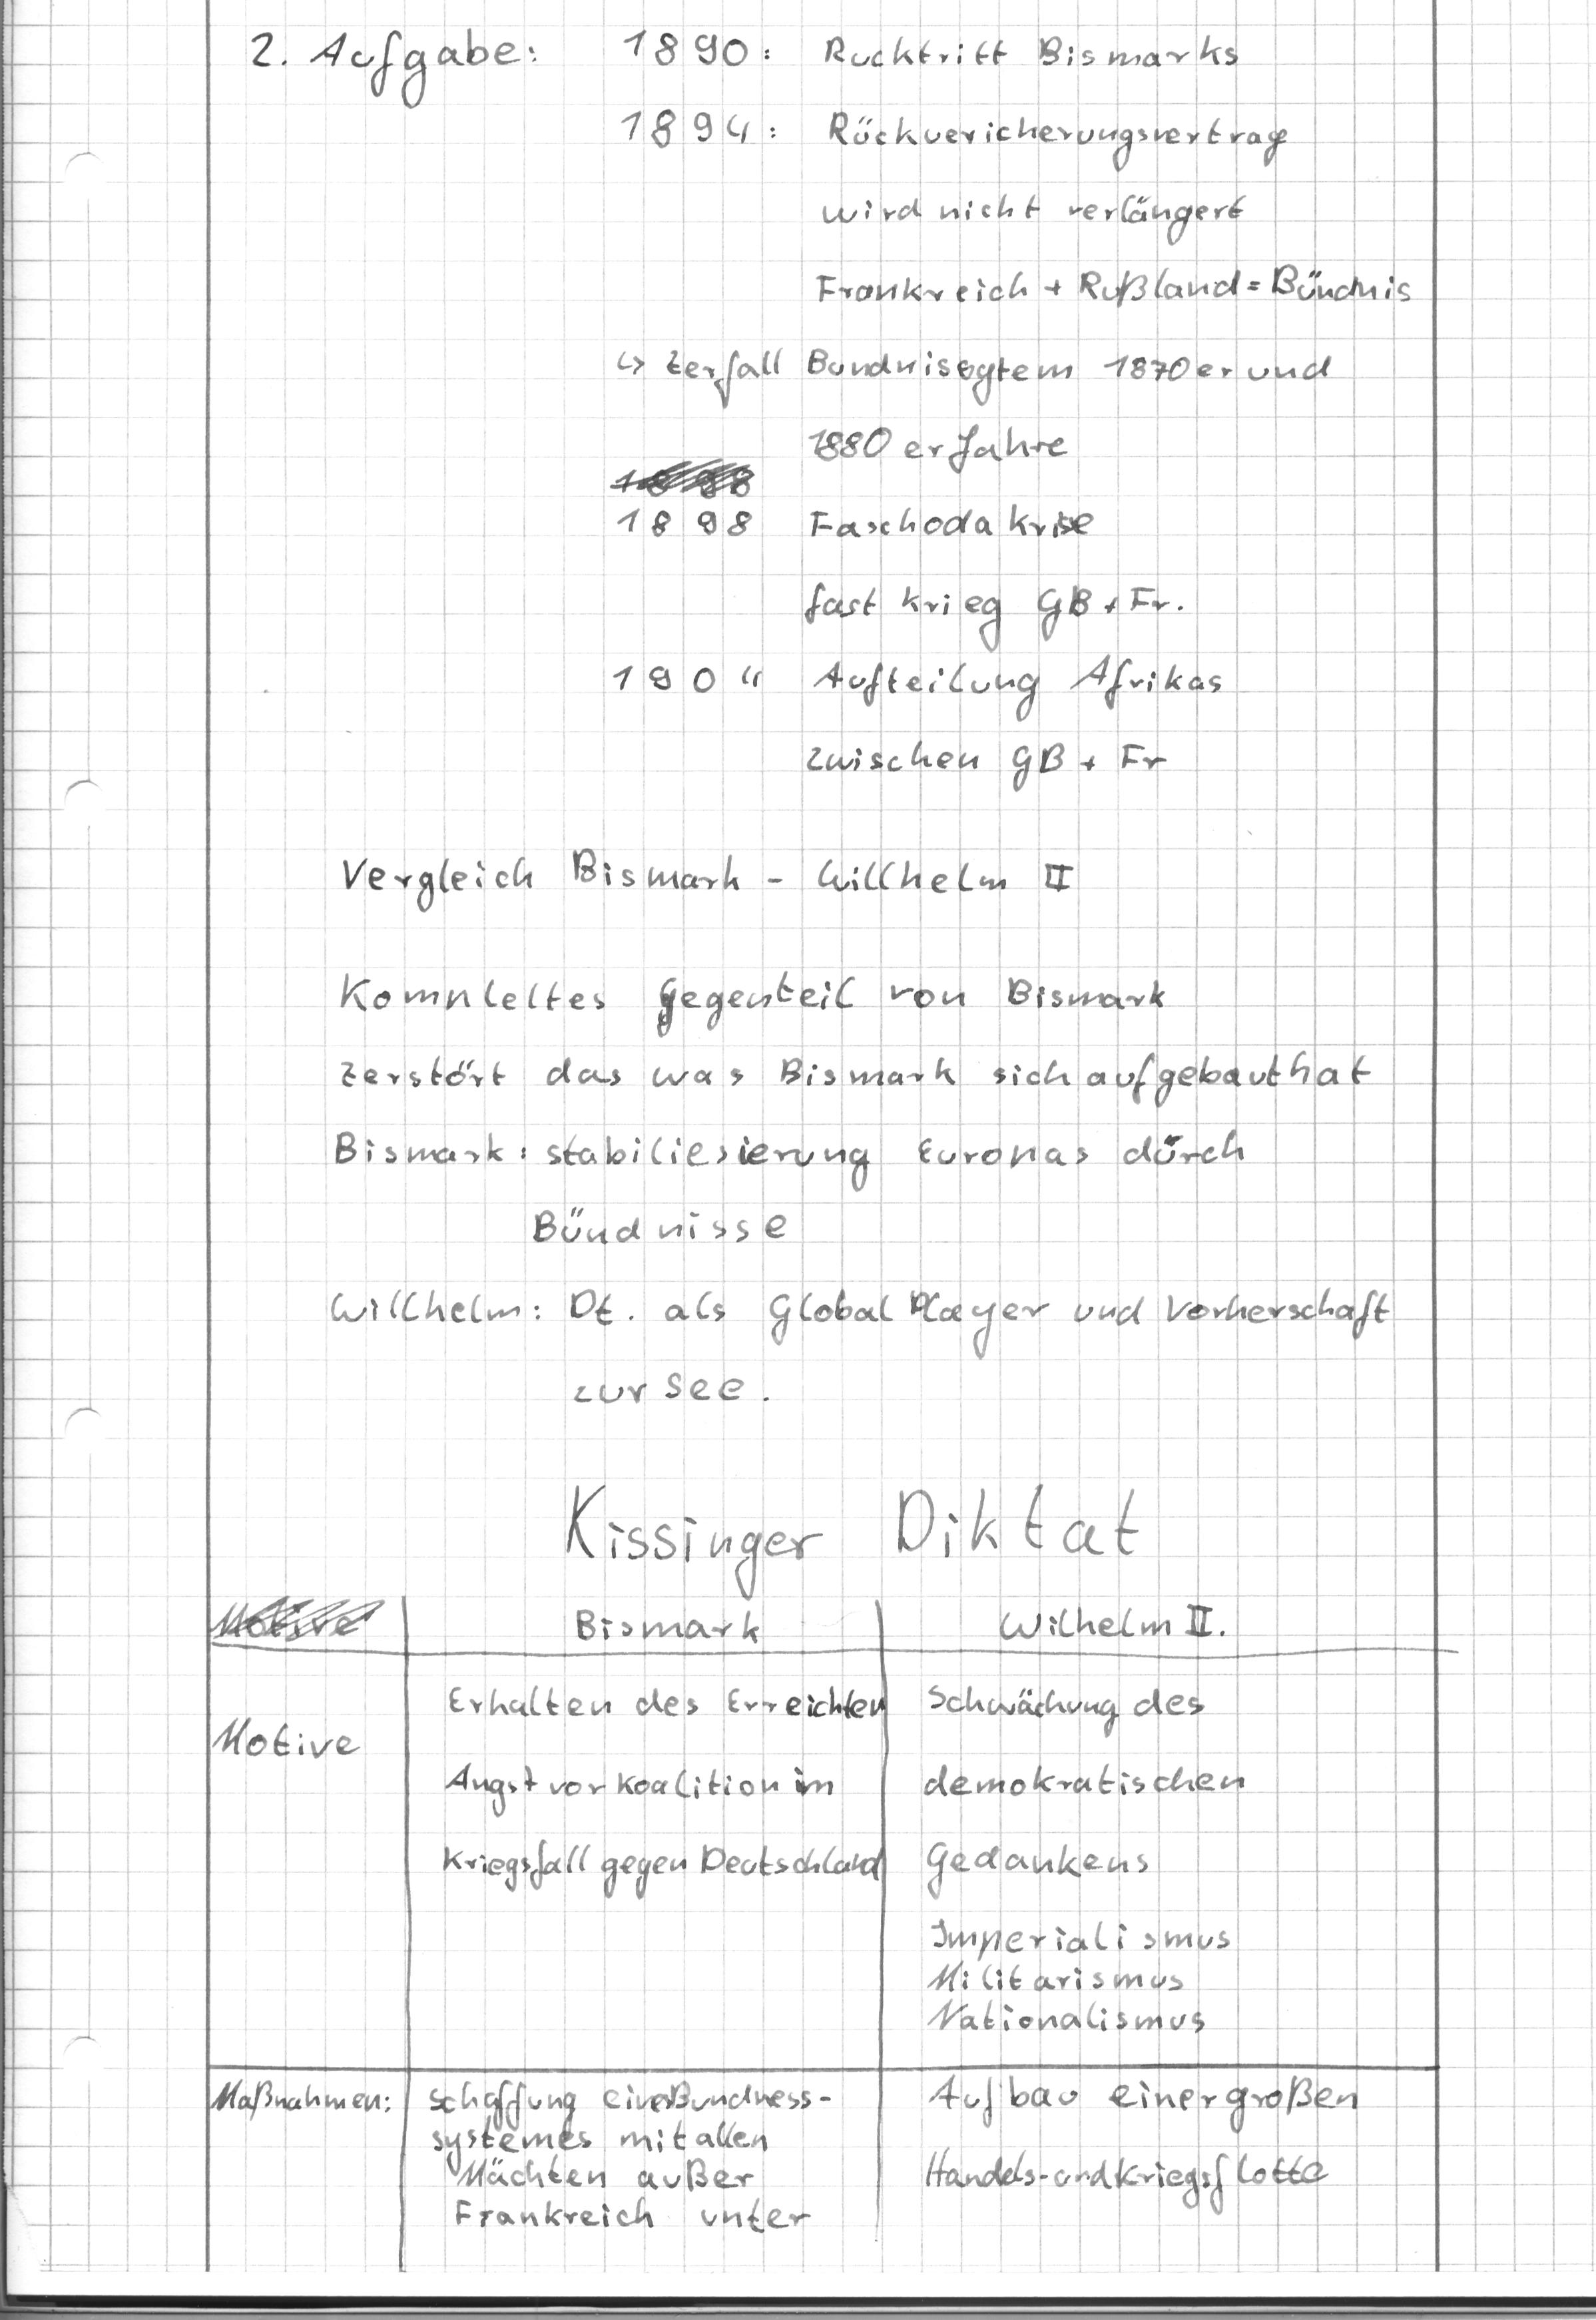 2. Aufgabe: 1890: Rucktritt Bismarks
1894: Rückvericherungsvertrag
wird nicht verlängert
Frankreich + Rußland = Bündnis
↳ Zerfall Bundnissytem 1870er und
1880er Jahre
1898 Faschoda krise
fast krieg GB + Fr.
1904 Aufteilung Afrikas
zwischen GB + Fr
Vergleich Bismark - Willhelm II
Kompleltes Gegenteil von Bismark
zerstört das was Bismark sich aufgebaut hat
Bismark: stabiliesierung Europas dürch
Bündnisse
Willhelm: Dt. als Global Player und Vorherschaft
zur See.
Kissinger Diktat
Bismark Wilhelm II.
Motive
Erhalten des Erreichten
Angst vor Koalition im
Kriegsfall gegen Deutschland
Schwächung des
demokratischen
Gedankens
Imperialismus
Militarismus
Nationalismus
Maßnahmen:
schaffung eines Bundness-
systemes mit allen
Mächten außer
Frankreich unter
Aufbau einer großen
Handels- und Kriegsflotte